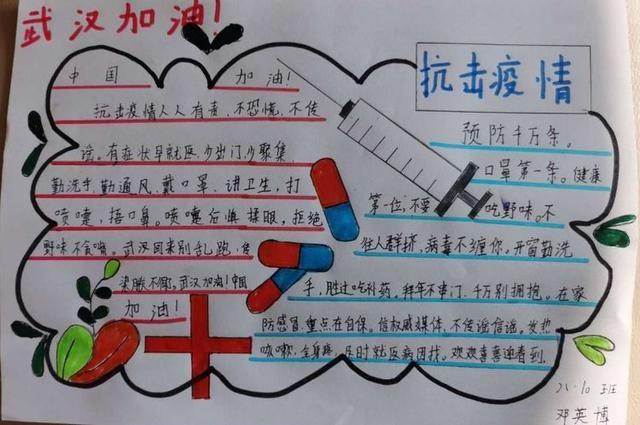 武汉加油!
中国 加油!
抗击疫情人人有责,不恐慌,不传
谣。有症状早就医,少出门,少聚集,
勤洗手,勤通风,戴口罩、讲卫生,打
喷嚏,捂口鼻。喷嚏后慎揉眼,拒绝
野味不贪嘴。武汉回来别乱跑,传
染源不得了,武汉加油!中国
加油!
抗击疫情
预防千万条。
口罩第一条。健康
第一位,不要 吃野味。不
往人群挤,病毒不缠你,开窗勤洗
手,胜过吃补药,拜年不串门,千万别拥抱。在家
防感冒,重点在自保。信权威媒体,不传谣信谣。发热
咳嗽,全身疼,及时就医病因找。欢欢喜喜迎春到
邓英博